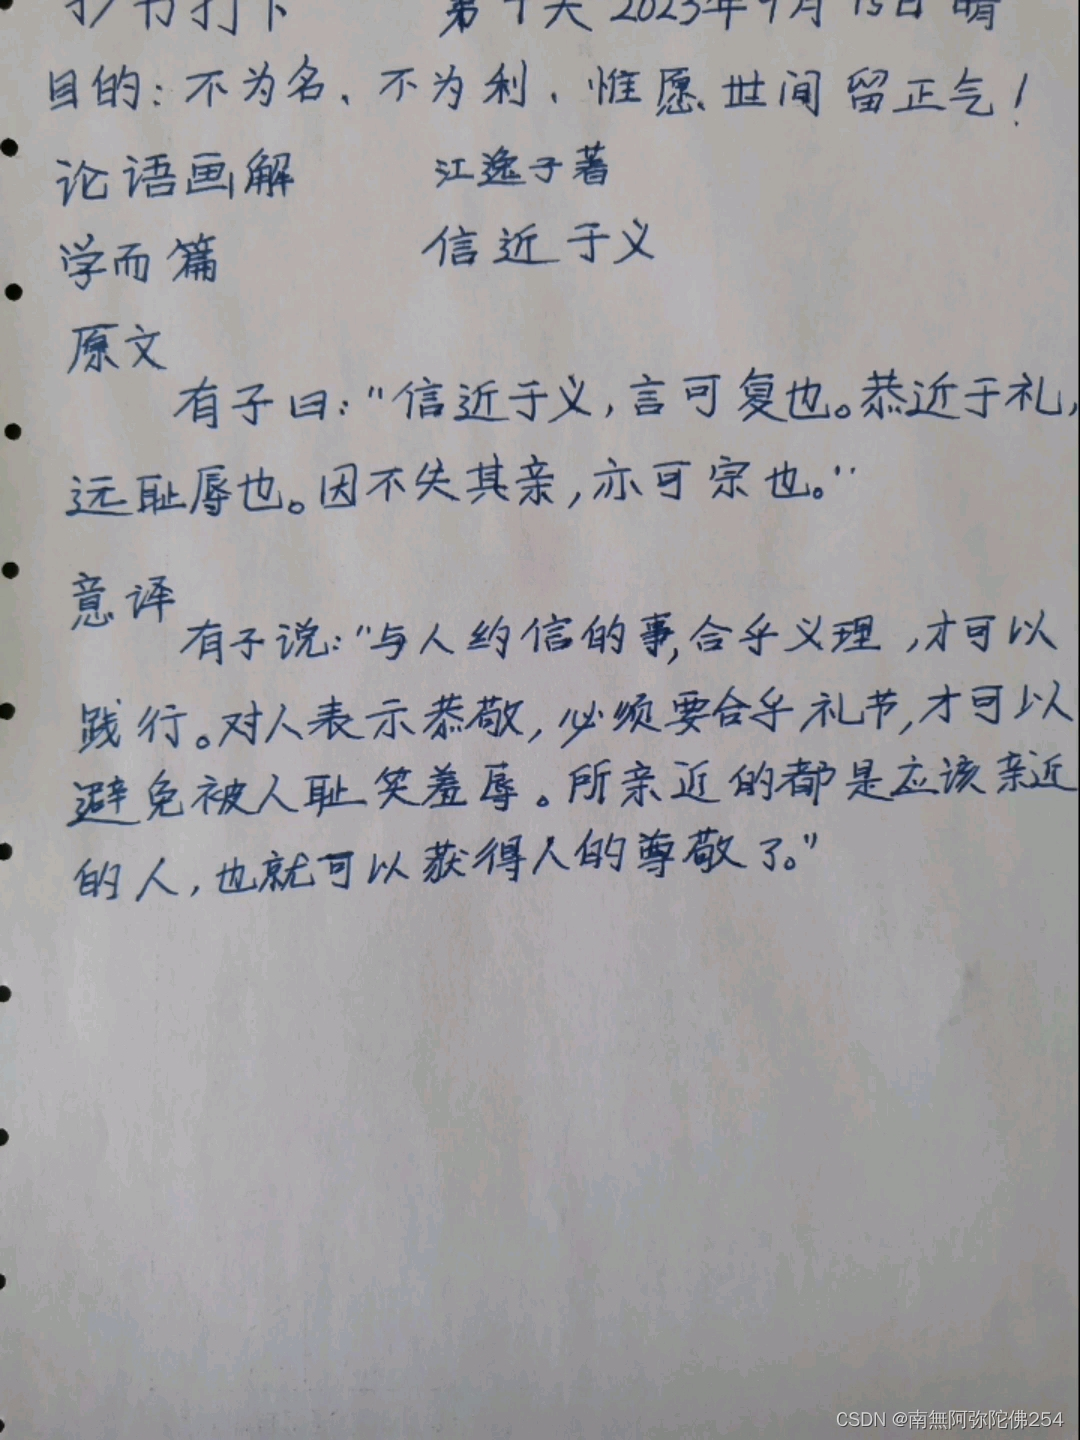 抄书打卡 第十天 2023年9月15日 晴
目的：不为名、不为利、惟愿世间留正气！
论语画解 江逸子著
学而篇 信近于义
原文
有子曰："信近于义，言可复也。恭近于礼，
远耻辱也。因不失其亲，亦可宗也。"
意译
有子说："与人约信的事，合乎义理，才可以
践行。对人表示恭敬，必须要合乎礼节，才可以
避免被人耻笑羞辱。所亲近的都是应该亲近
的人，也就可以获得人的尊敬了。"
CSDN @南無阿弥陀佛254